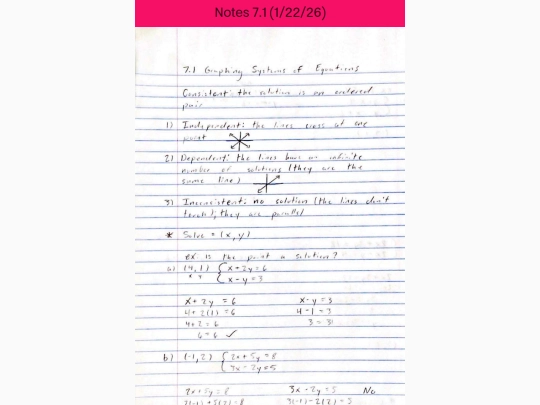 Notes 7.1 (1/22/26)
7.1 Graphing Systems of Equations
Consistent: the solution is an ordered
pair
1) Independent: the lines cross at one
point
2) Dependent: the lines have an infinite
number of solutions (they are the
same line)
3) Inconsistent: no solution (the lines don't
touch), they are parallel
* Solve = (x, y)
ex: is the point a solution?
a) (4, 1) { x + 2y = 6
x y { x - y = 3
x + 2y = 6 x - y = 3
4 + 2(1) = 6 4 - 1 = 3
4 + 2 = 6 3 = 3!
6 = 6 ✓
b) (-1, 2) { 2x + 5y = 8
{ 3x - 2y = 5
2x + 5y = 8 3x - 2y = 5 No
2(-1) + 5(2) = 8 3(-1) - 2(2) = 5